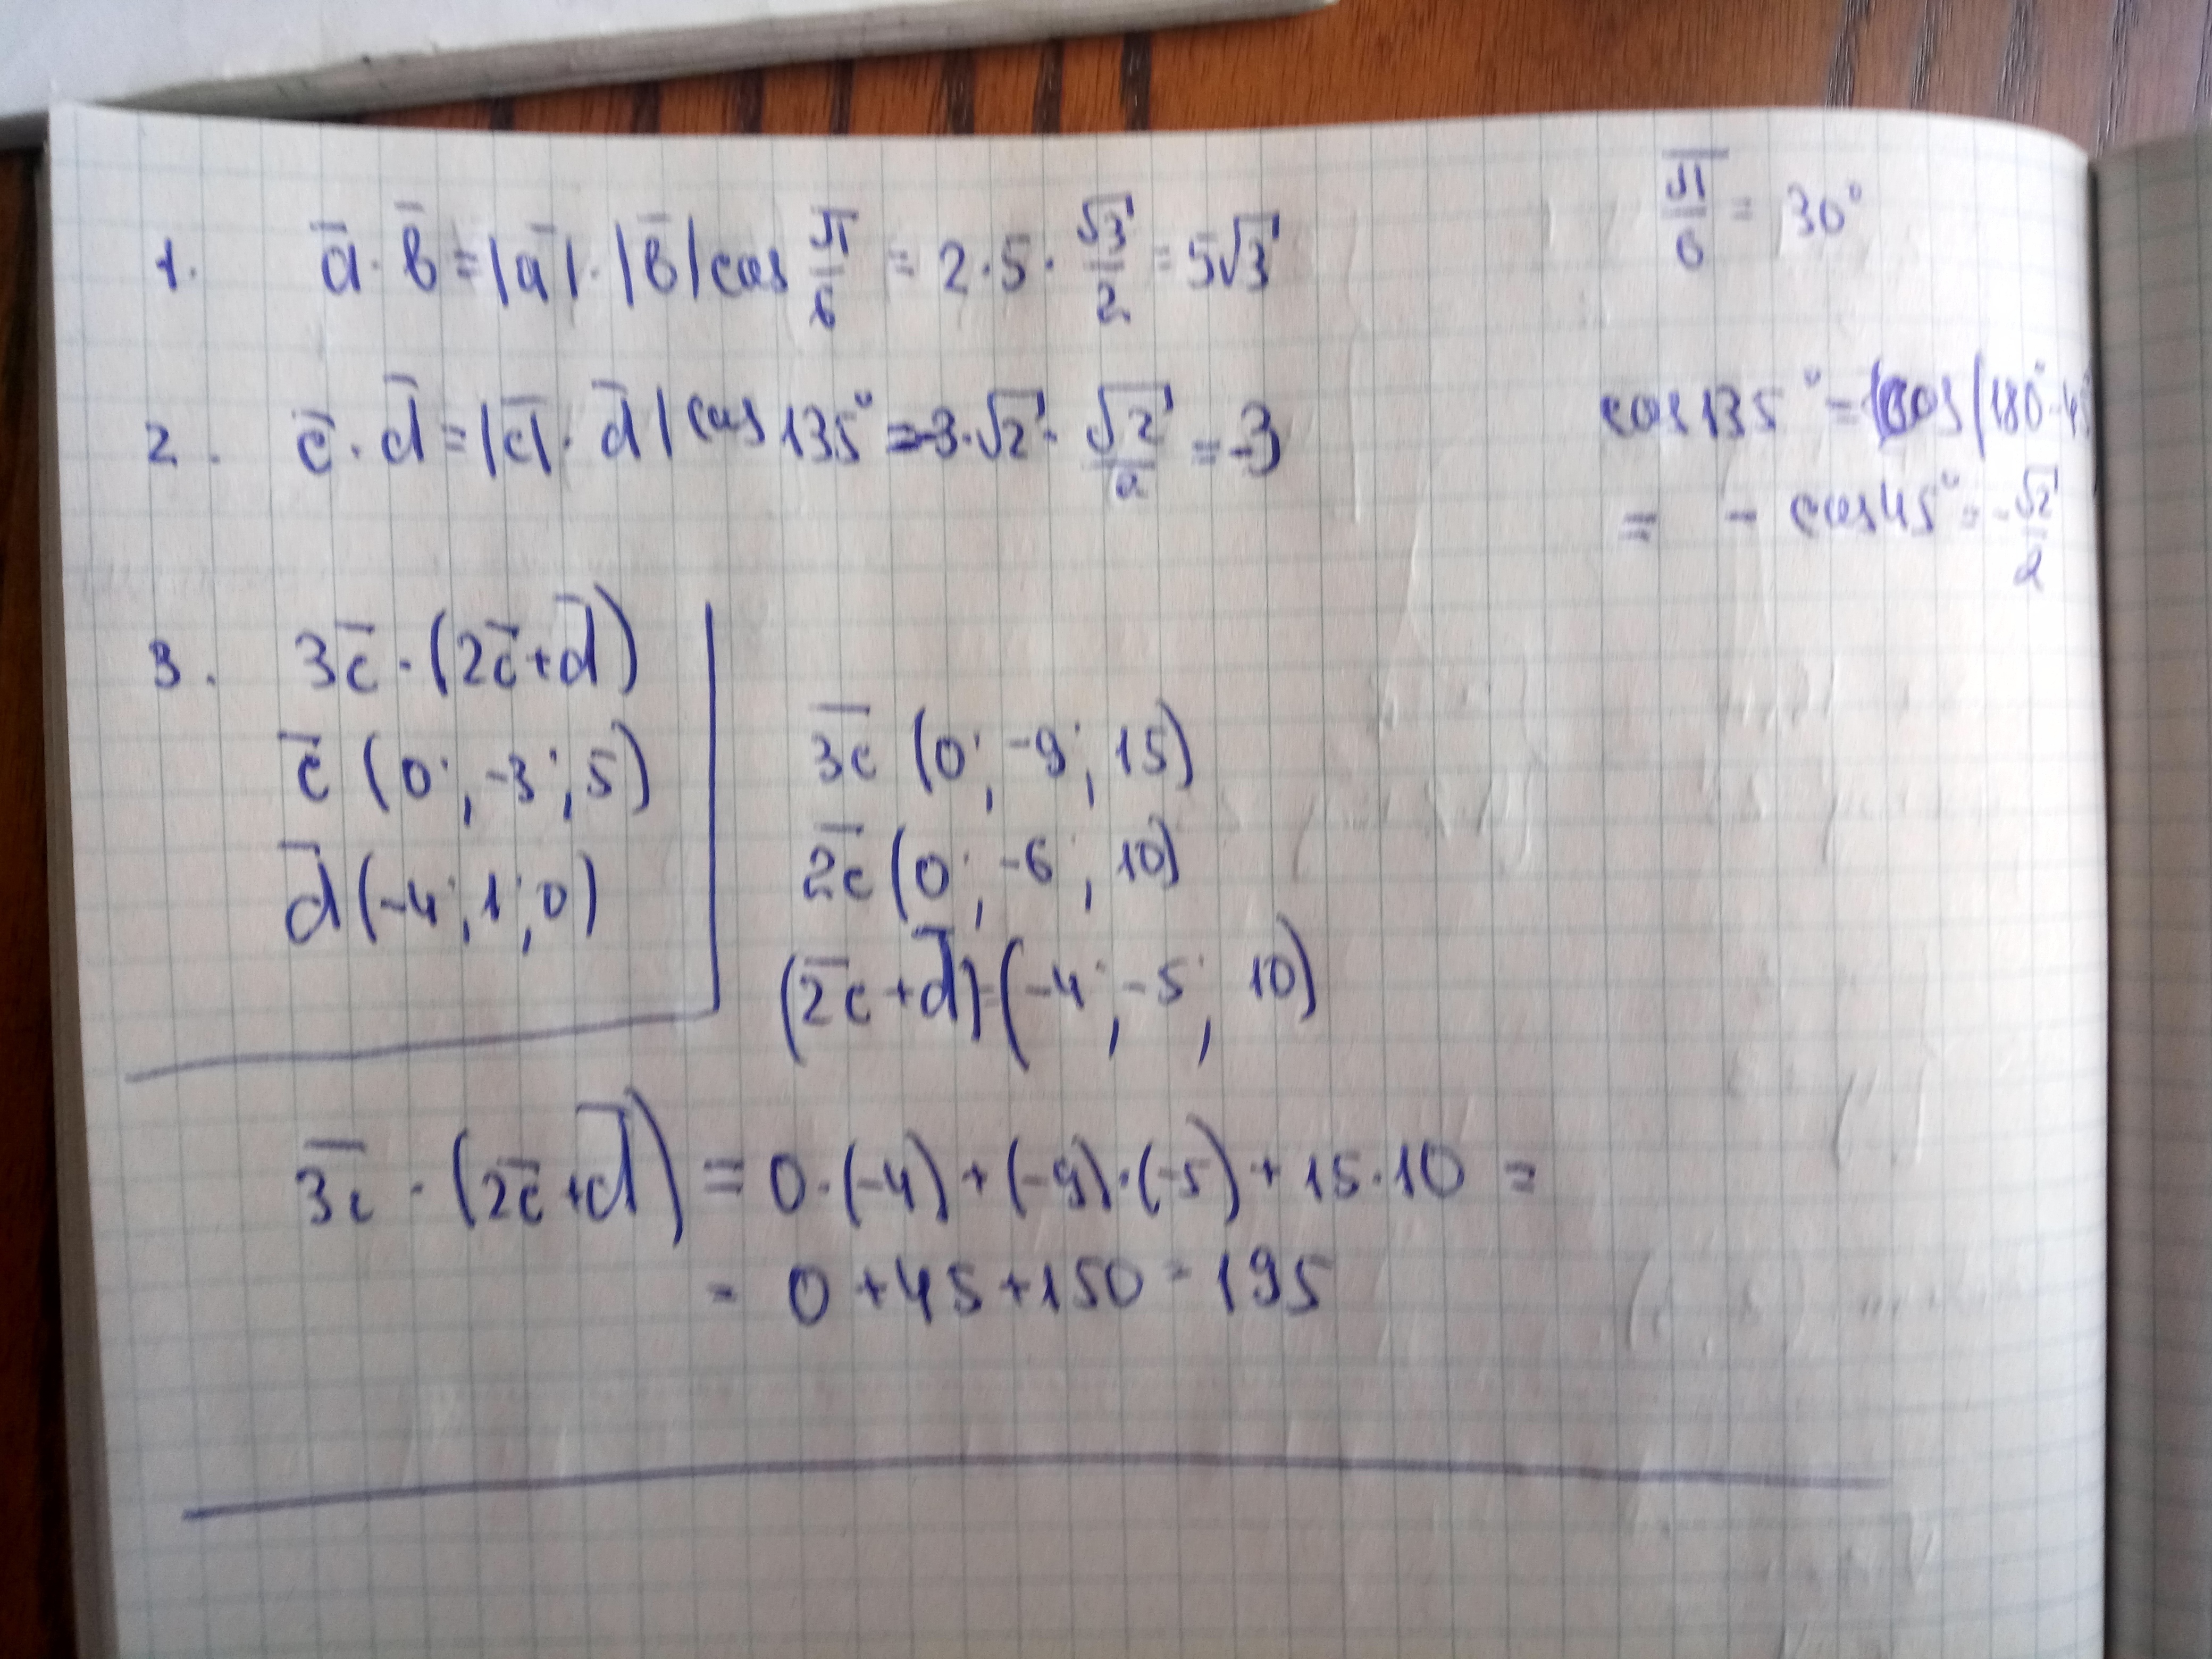 1. a̅ · b̅ = |a̅| · |b̅| cos π/6 = 2 · 5 · √3/2 = 5√3
π/6 = 30°
2. c̅ · d̅ = |c̅| · d̅| cos 135° = -3 · √2 · √2/2 = -3
cos 135° = cos (180° - 45
= - cos 45° = - √2/2
3. 3c̅ · (2c̅ + d̅)
c̅ (0 ; -3 ; 5)
d̅ (-4 ; 1 ; 0)
3c̅ (0 ; -9 ; 15)
2c̅ (0 ; -6 ; 10)
(2c̅ + d̅) (-4 ; -5 ; 10)
3c̅ · (2c̅ + d̅) = 0 · (-4) + (-9) · (-5) + 15 · 10 =
= 0 + 45 + 150 = 195